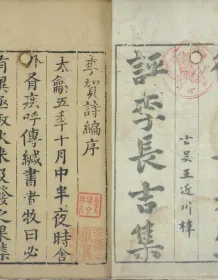 評李長吉集
古吴王近川梓
李賀詩編序
太龢五秊十月中半夜時舍
外有疾呼傳緘書者牧曰必
有異亟取火來及發之果集